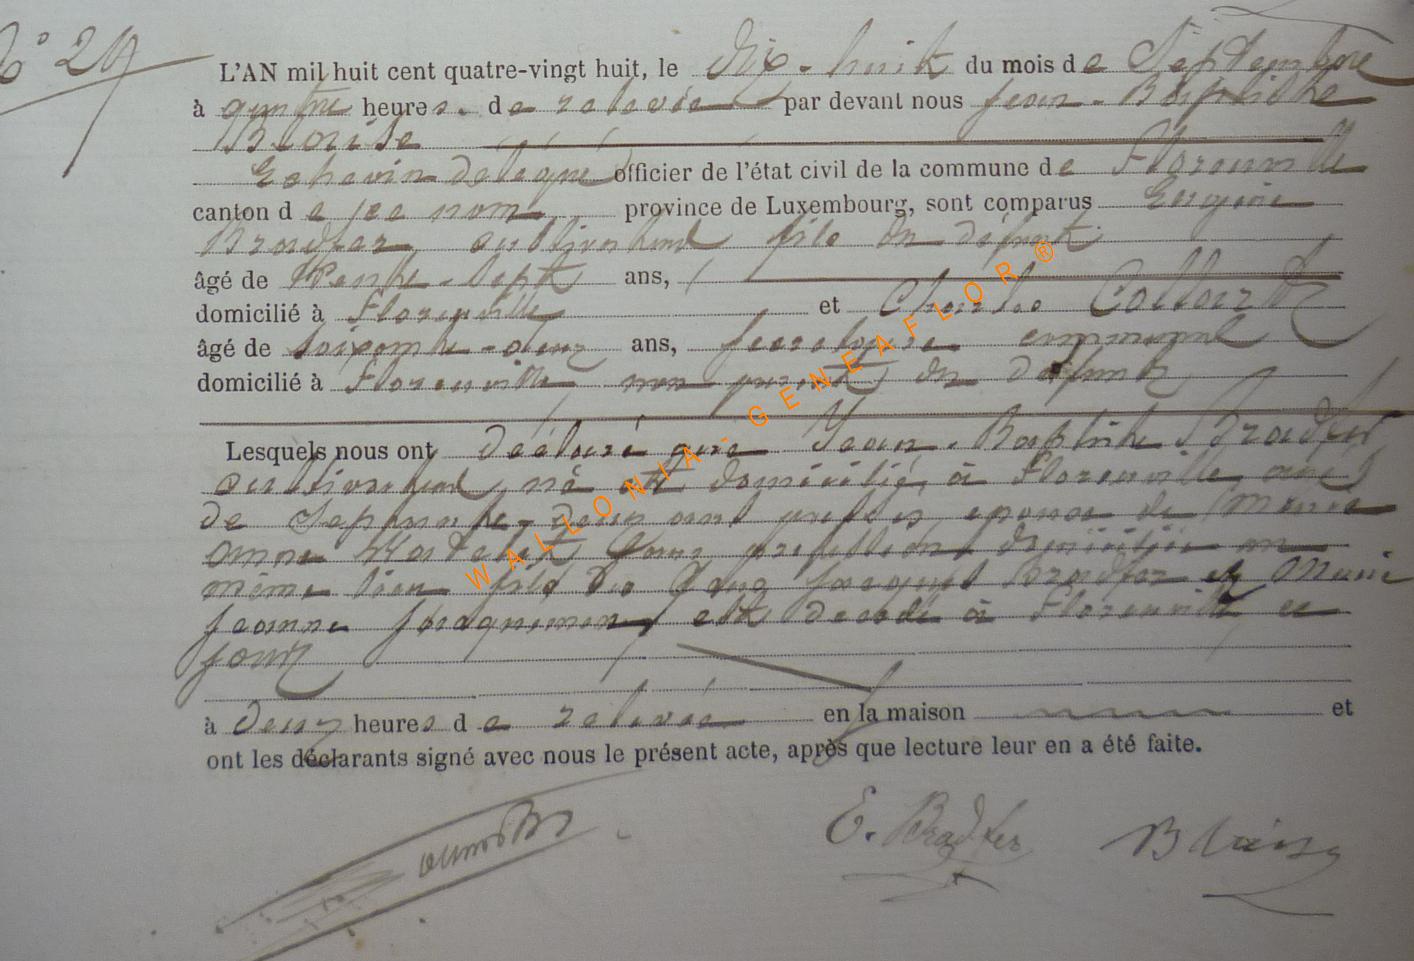 N° 29
L'AN mil huit cent quatre-vingt huit, le dix-huit du mois de Septembre
à quatre heures. de relevée par devant nous Jean-Baptiste
Blaise
Echevin délégué officier de l'état civil de la commune de Florenville
canton de ce nom, province de Luxembourg, sont comparus Eugène
Bradfer cultivateur fils du défunt
âgé de trente-sept ans,
domicilié à Florenville et Charles
âgé de soixante-deux ans, secrétaire communal
domicilié à Florenville non parent du défunt
Lesquels nous ont déclaré que Jean-Baptiste Bradfer
cultivateur né et domicilié à Florenville âgé
de septante-deux ans époux de Marie
Anne sans profession, domiciliée au
même lieu fils de Jacques Bradfer et Marie
Jeanne est décédé à Florenville ce
jour
à deux heures de relevée en la maison et
ont les déclarants signé avec nous le présent acte, après que lecture leur en a été faite.
E. Bradfer Blaise
WALLONIA-GENEAFLOR ®